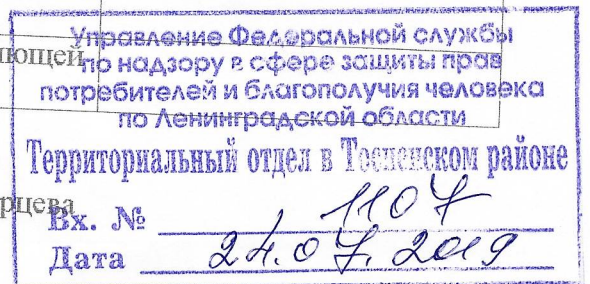 Управление Федеральной службы
ющей
по надзору в сфере защиты прав
потребителей и благополучия человека
по Ленинградской области
Территориальный отдел в Тосненском районе
рцева
Вх. № 1107
Дата 24.07.2019